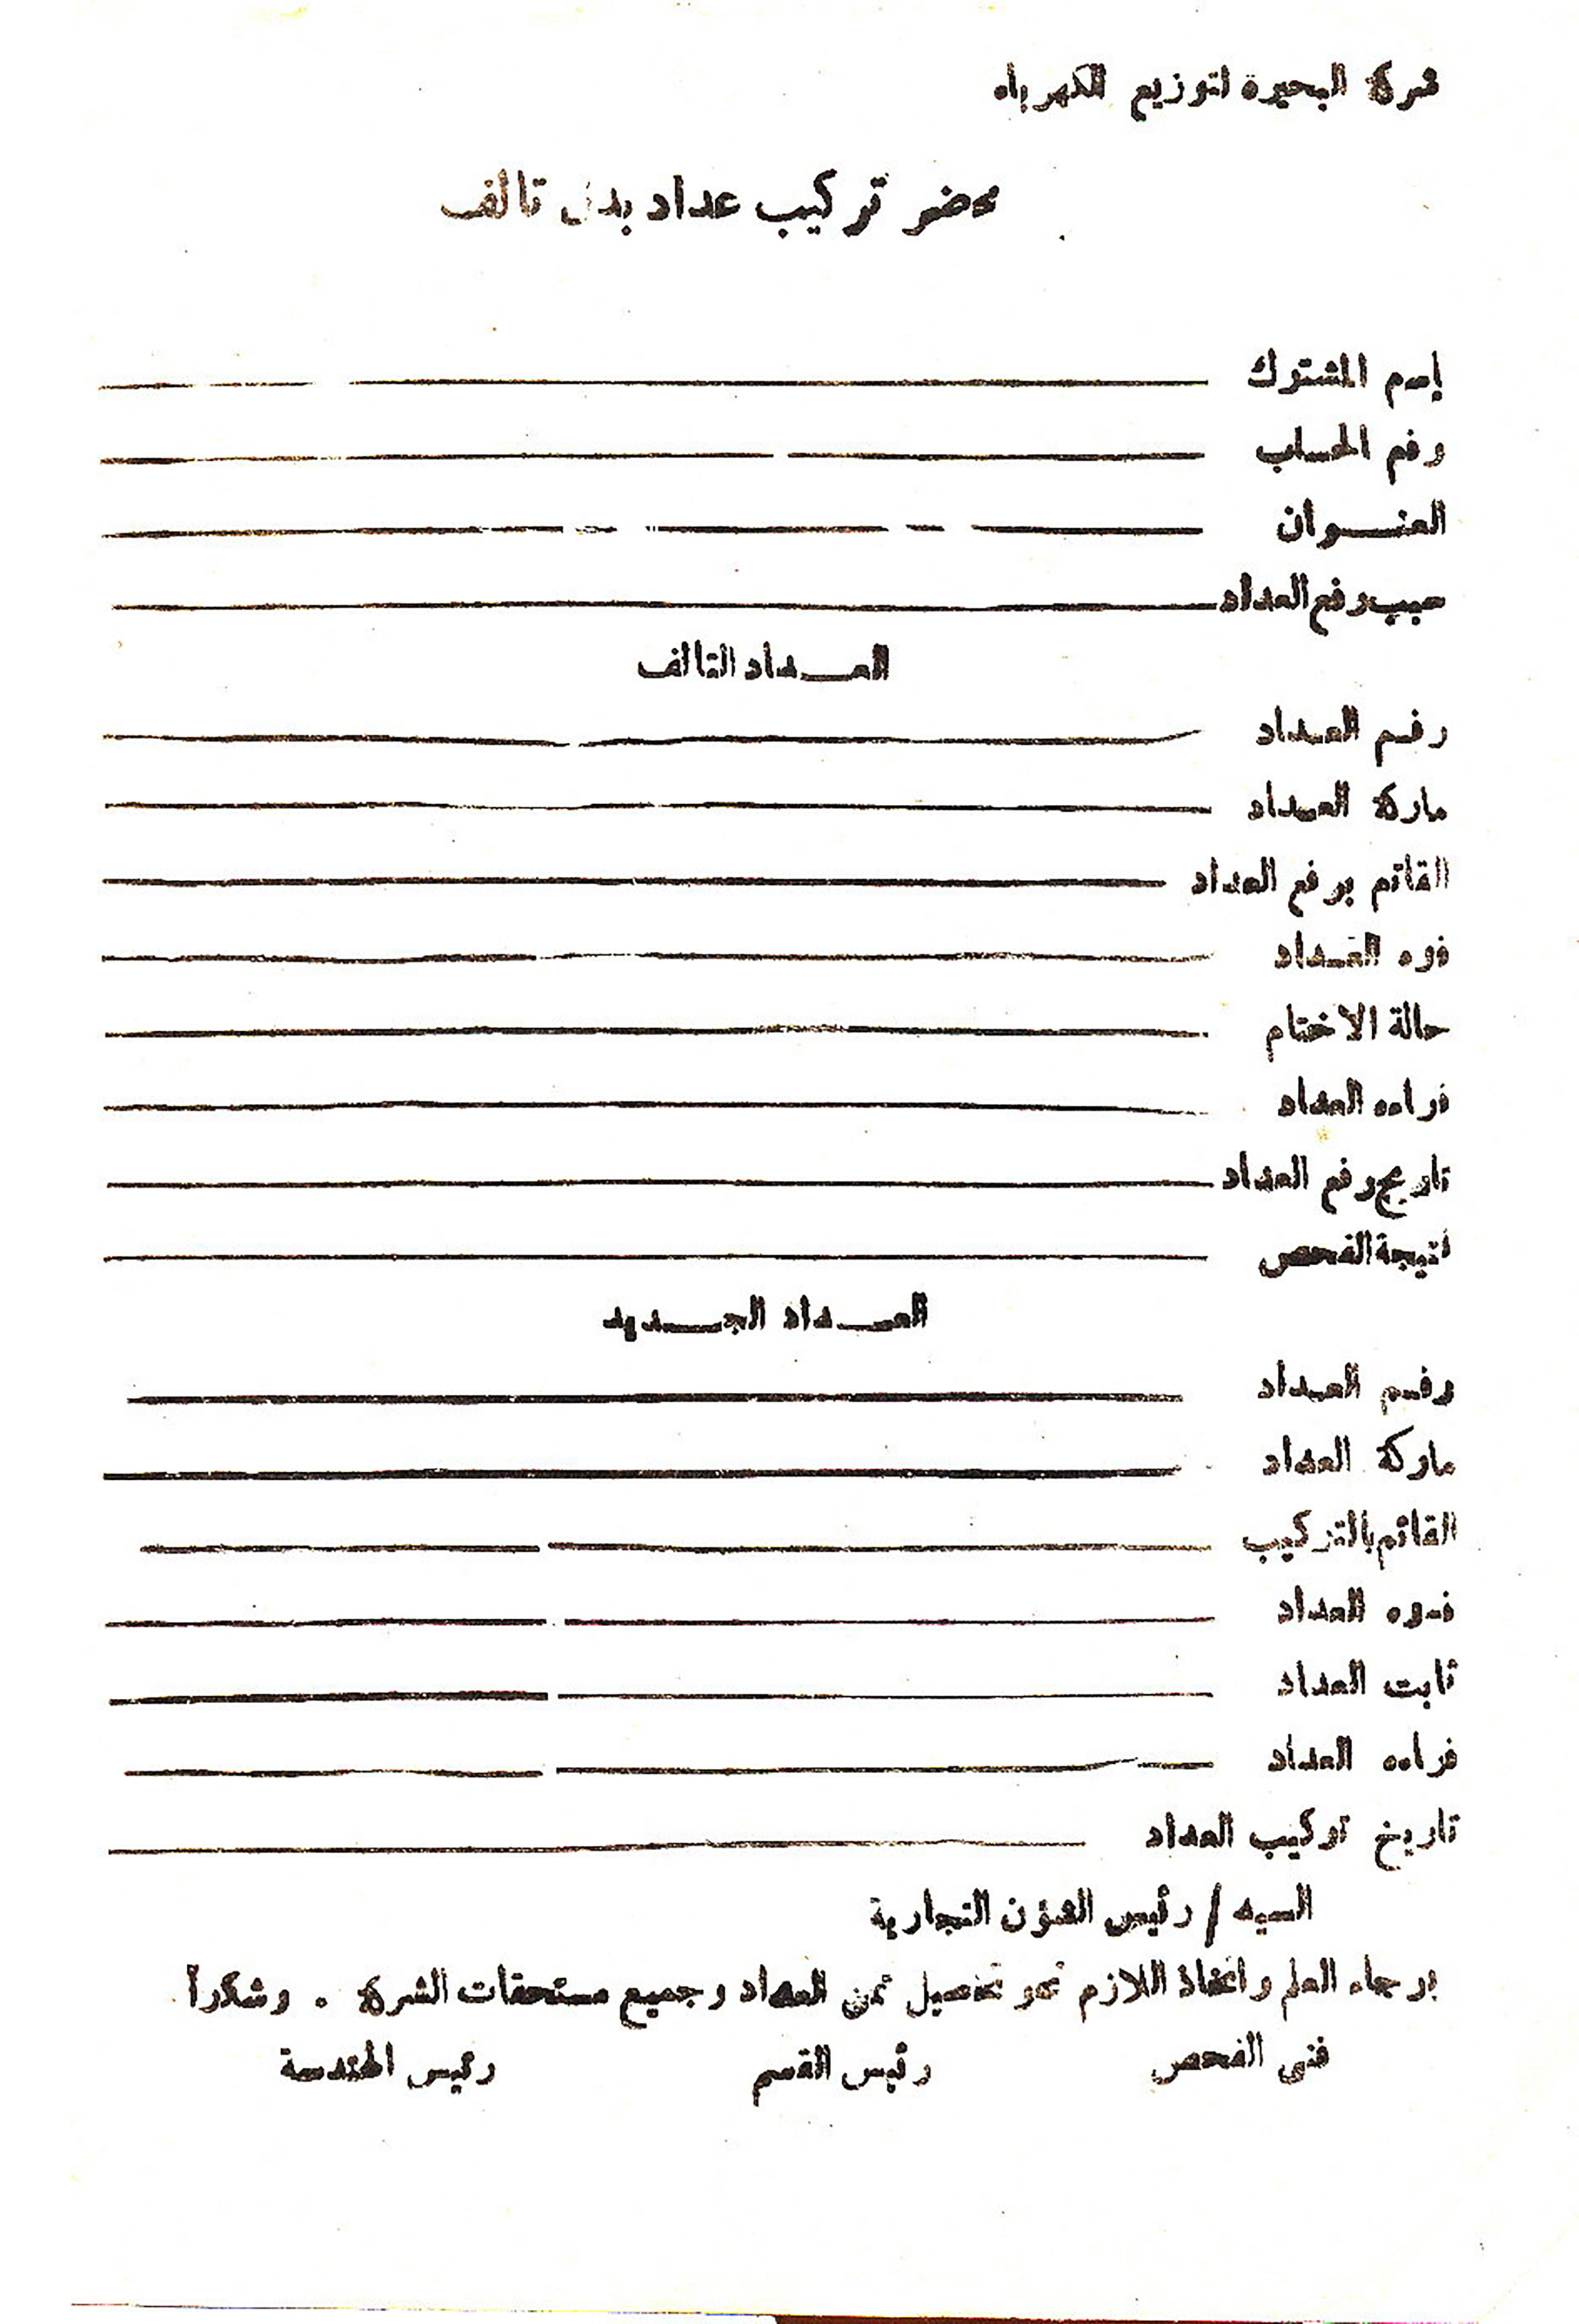 شركة البحيرة لتوزيع الكهرباء
محضر تركيب عداد بدل تالف
إسم المشترك
رقم الحساب
العنـــوان
سبب رفع العداد
العـــداد التالف
رقم العداد
ماركة العداد
القائم برفع العداد
قوه العداد
حالة الاختام
قراءه العداد
تاريخ رفع العداد
نتيجة الفحص
العـــداد الجـــديد
رقم العداد
ماركة العداد
القائم بالتركيب
قوه العداد
ثابت العداد
قراءه العداد
تاريخ تركيب العداد
السيد / رئيس الشؤن التجارية
برجاء العلم واتخاذ اللازم نحو تحصيل ثمن العداد وجميع مستحقات الشركة . وشكراً
فنى الفحص رئيس القسم رئيس الهندسة